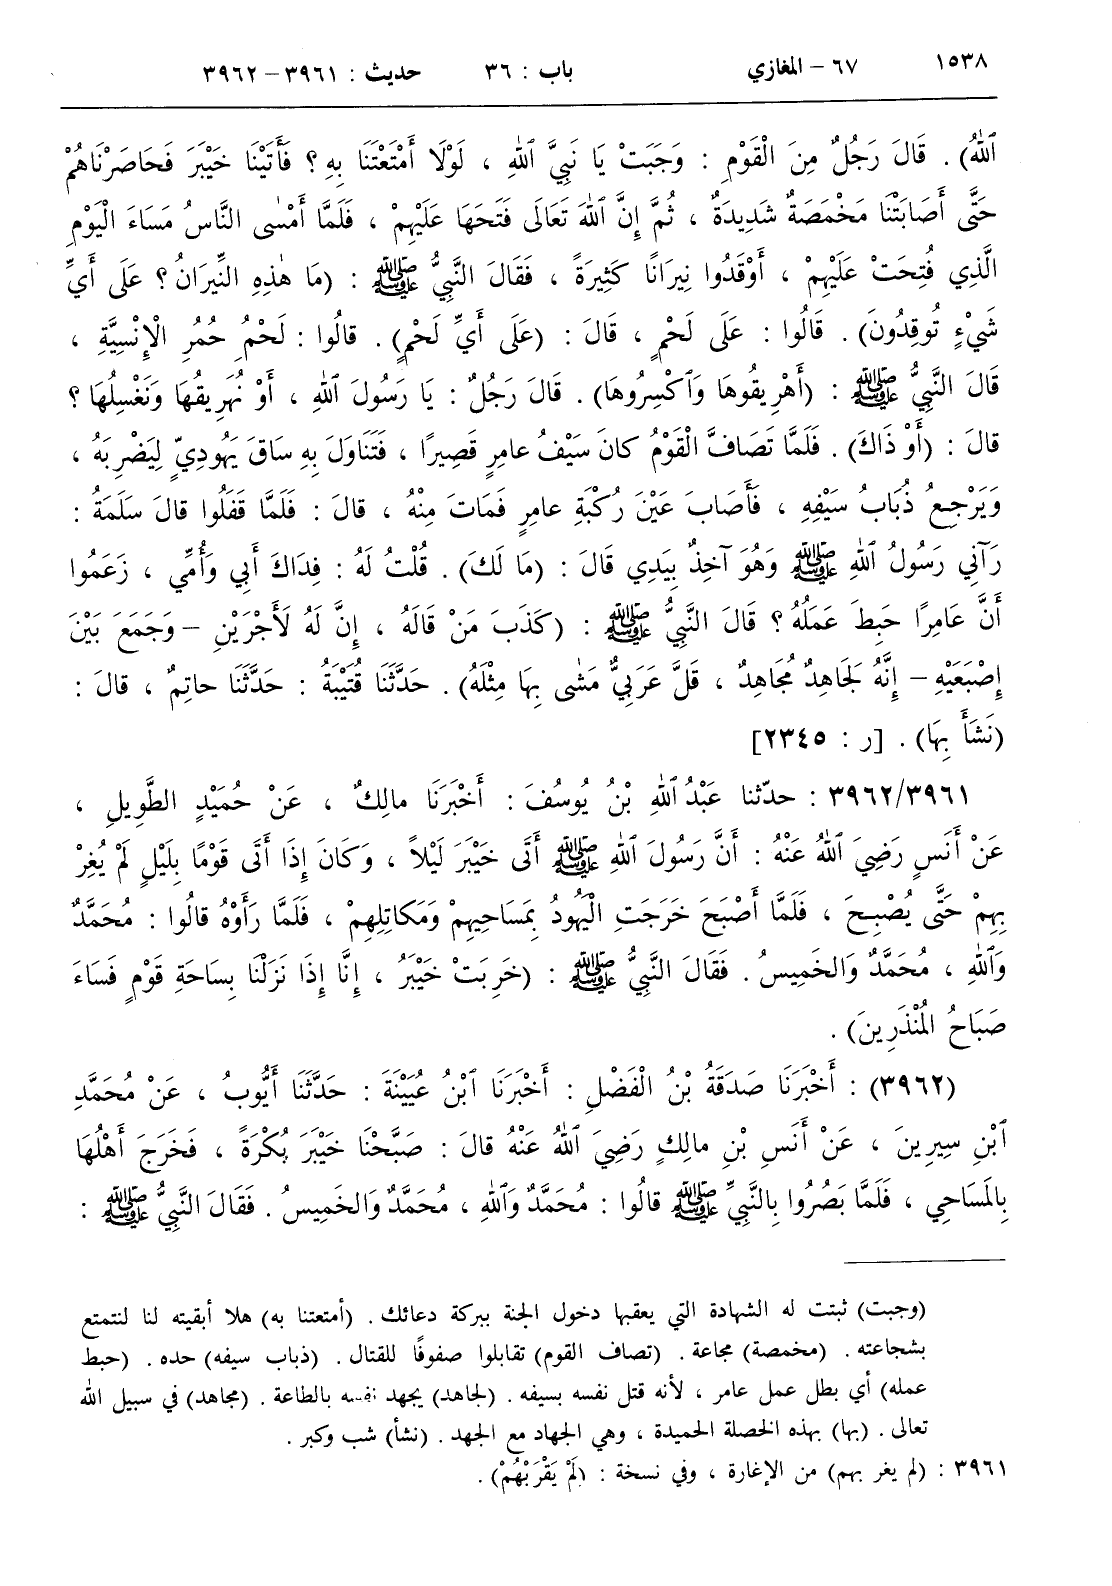 ١٥٣٨ ٦٧ - المغازي باب : ٣٦ حديث : ٣٩٦١ - ٣٩٦٢
ٱللهُ) . قَالَ رَجُلٌ مِنَ الْقَوْمِ : وَجَبَتْ يَا نَبِيَّ ٱللهِ ، لَوْلَا أَمْتَعْتَنَا بِهِ ؟ فَأَتَيْنَا خَيْبَرَ فَحَاصَرْنَاهُمْ
حَتَّى أَصَابَتْنَا مَخْمَصَةٌ شَدِيدَةٌ ، ثُمَّ إِنَّ ٱللهَ تَعَالَى فَتَحَهَا عَلَيْهِمْ ، فَلَمَّا أَمْسٰى النَّاسُ مَسَاءَ الْيَوْمِ
الَّذِي فُتِحَتْ عَلَيْهِمْ ، أَوْقَدُوا نِيرَانًا كَثِيرَةً ، فَقَالَ النَّبِيُّ ﷺ : (مَا هٰذِهِ النِّيرَانُ ؟ عَلَى أَيِّ
شَيْءٍ تُوقِدُونَ) . قَالُوا : عَلَى لَحْمٍ ، قَالَ : (عَلَى أَيِّ لَحْمٍ) . قالُوا : لَحْمُ حُمُرِ الْإِنْسِيَّةِ ،
قَالَ النَّبِيُّ ﷺ : (أَهْرِيقُوهَا وَٱكْسِرُوهَا) . قَالَ رَجُلٌ : يَا رَسُولَ ٱللهِ ، أَوْ نُهَرِيقُهَا وَنَغْسِلُهَا ؟
قالَ : (أَوْ ذَاكَ) . فَلَمَّا تَصَافَّ الْقَوْمُ كانَ سَيْفُ عامِرٍ قَصِيرًا ، فَتَنَاوَلَ بِهِ ساقَ يَهُودِيٍّ لِيَضْرِبَهُ ،
وَيَرْجِعُ ذُبَابُ سَيْفِهِ ، فَأَصَابَ عَيْنَ رُكْبَةِ عامِرٍ فَمَاتَ مِنْهُ ، قالَ : فَلَمَّا قَفَلُوا قالَ سَلَمَةُ :
رَآنِي رَسُولُ ٱللهِ ﷺ وَهُوَ آخِذٌ بِيَدِي قَالَ : (مَا لَكَ) . قُلْتُ لَهُ : فِدَاكَ أَبِي وَأُمِّي ، زَعَمُوا
أَنَّ عَامِرًا حَبِطَ عَمَلُهُ ؟ قَالَ النَّبِيُّ ﷺ : (كَذَبَ مَنْ قَالَهُ ، إِنَّ لَهُ لَأَجْرَيْنِ - وَجَمَعَ بَيْنَ
إِصْبَعَيْهِ - إِنَّهُ لَجَاهِدٌ مُجَاهِدٌ ، قَلَّ عَرَبِيٌّ مَشٰى بِهَا مِثْلَهُ) . حَدَّثَنَا قُتَيْبَةُ : حَدَّثَنَا حاتِمٌ ، قالَ :
(نَشَأَ بِهَا) . [ر : ٢٣٤٥]
٣٩٦٢/٣٩٦١ : حدّثنا عَبْدُ ٱللهِ بْنُ يُوسُفَ : أَخْبَرَنَا مالِكٌ ، عَنْ حُمَيْدٍ الطَّوِيلِ ،
عَنْ أَنَسٍ رَضِيَ ٱللهُ عَنْهُ : أَنَّ رَسُولَ ٱللهِ ﷺ أَتَى خَيْبَرَ لَيْلاً ، وَكَانَ إِذَا أَتَى قَوْمًا بِلَيْلٍ لَمْ يُغِرْ
بِهِمْ حَتَّى يُصْبِحَ ، فَلَمَّا أَصْبَحَ خَرَجَتِ الْيَهُودُ بِمَسَاحِيهِمْ وَمَكاتِلِهِمْ ، فَلَمَّا رَأَوْهُ قالُوا : مُحَمَّدٌ
وَٱللهِ ، مُحَمَّدٌ وَالخَمِيسُ . فَقَالَ النَّبِيُّ ﷺ : (خَرِبَتْ خَيْبَرُ ، إِنَّا إِذَا نَزَلْنَا بِسَاحَةِ قَوْمٍ فَسَاءَ
صَبَاحُ الْمُنْذَرِينَ) .
(٣٩٦٢) : أَخْبَرَنَا صَدَقَةُ بْنُ الْفَضْلِ : أَخْبَرَنَا ٱبْنُ عُيَيْنَةَ : حَدَّثَنَا أَيُّوبُ ، عَنْ مُحَمَّدِ
ٱبْنِ سِيرِينَ ، عَنْ أَنَسِ بْنِ مالِكٍ رَضِيَ ٱللهُ عَنْهُ قالَ : صَبَّحْنَا خَيْبَرَ بُكْرَةً ، فَخَرَجَ أَهْلُهَا
بِالمَسَاحِي ، فَلَمَّا بَصُرُوا بِالنَّبِيِّ ﷺ قالُوا : مُحَمَّدٌ وَٱللهِ ، مُحَمَّدٌ وَالخَمِيسُ . فَقَالَ النَّبِيُّ ﷺ :
(وجبت) ثبتت له الشهادة التي يعقبها دخول الجنة ببركة دعائك . (أمتعتنا به) هلا أبقيته لنا لنتمتع
بشجاعته . (مخمصة) مجاعة . (تصاف القوم) تقابلوا صفوفًا للقتال . (ذباب سيفه) حده . (حبط
عمله) أي بطل عمل عامر ، لأنه قتل نفسه بسيفه . (لجاهد) يجهد نفسه بالطاعة . (مجاهد) في سبيل الله
تعالى . (بها) بهذه الخصلة الحميدة ، وهي الجهاد مع الجهد . (نشأ) شب وكبر .
٣٩٦١ : (لم يغر بهم) من الإغارة ، وفي نسخة : (لَمْ يَقْرَبْهُمْ) .